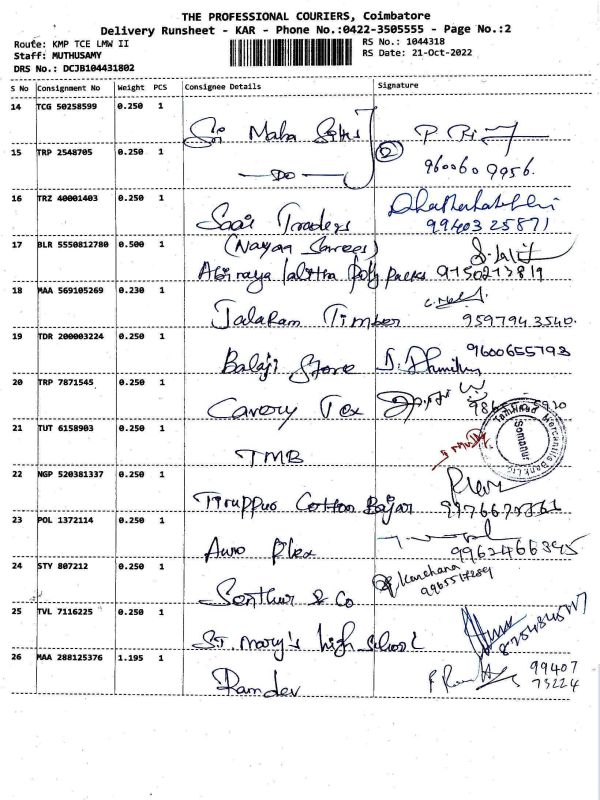 THE PROFESSIONAL COURIERS, Coimbatore
Delivery Runsheet - KAR - Phone No.:0422-3505555 - Page No.:2
Route: KMP TCE LMW II
RS No.: 1044318
Staff: MUTHUSAMY
RS Date: 21-Oct-2022
DRS No.: DCJB104431802
S No Consignment No Weight PCS Consignee Details Signature
14 TCG 50258599 0.250 1 Sri Maha
15 TRP 2548705 0.250 1 Do 2 960060 9956.
16 TRZ 40001403 0.250 1 Saai Traders 99403 25871
(Nayan Sarees)
17 BLR 5550812780 0.500 1 Abinaya Lalitha Poly packs 9150213819
18 MAA 569105269 0.230 1 Jalaram Timber 9597943540.
19 TDR 200003224 0.250 1 Balaji Store 9600655793
20 TRP 7871545 0.250 1 Cavery Tex
21 TUT 6158903 0.250 1 TMB
Tamilnad Mercantile Bank Ltd
Somanur
22 NGP 520381337 0.250 1 Tiruppur Cotton Bajar
23 POL 1372114 0.250 1 Auro Plex
24 STY 807212 0.250 1 Senthur & Co Kanchana
25 TVL 7116225 0.250 1 St. Mary's high school
26 MAA 288125376 1.195 1 Ramdev 99407
73224